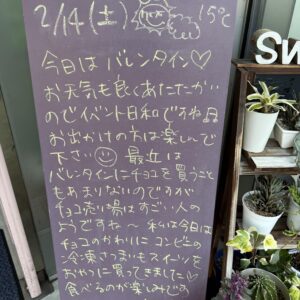 2/14(土) 15℃
今日はバレンタイン♡
お天気も良くあたたかい
のでイベント日和ですね♫
お出かけの方は楽しんで
下さい☺ 最近は
バレンタインにチョコを買うこと
もあまりないのですが
チョコ売り場はすごい人の
ようですね〜 私は今日は
チョコのかわりに コンビニの
冷凍さつまいもスイーツを
おやつに買ってきました♡
食べるのが楽しみです
SW